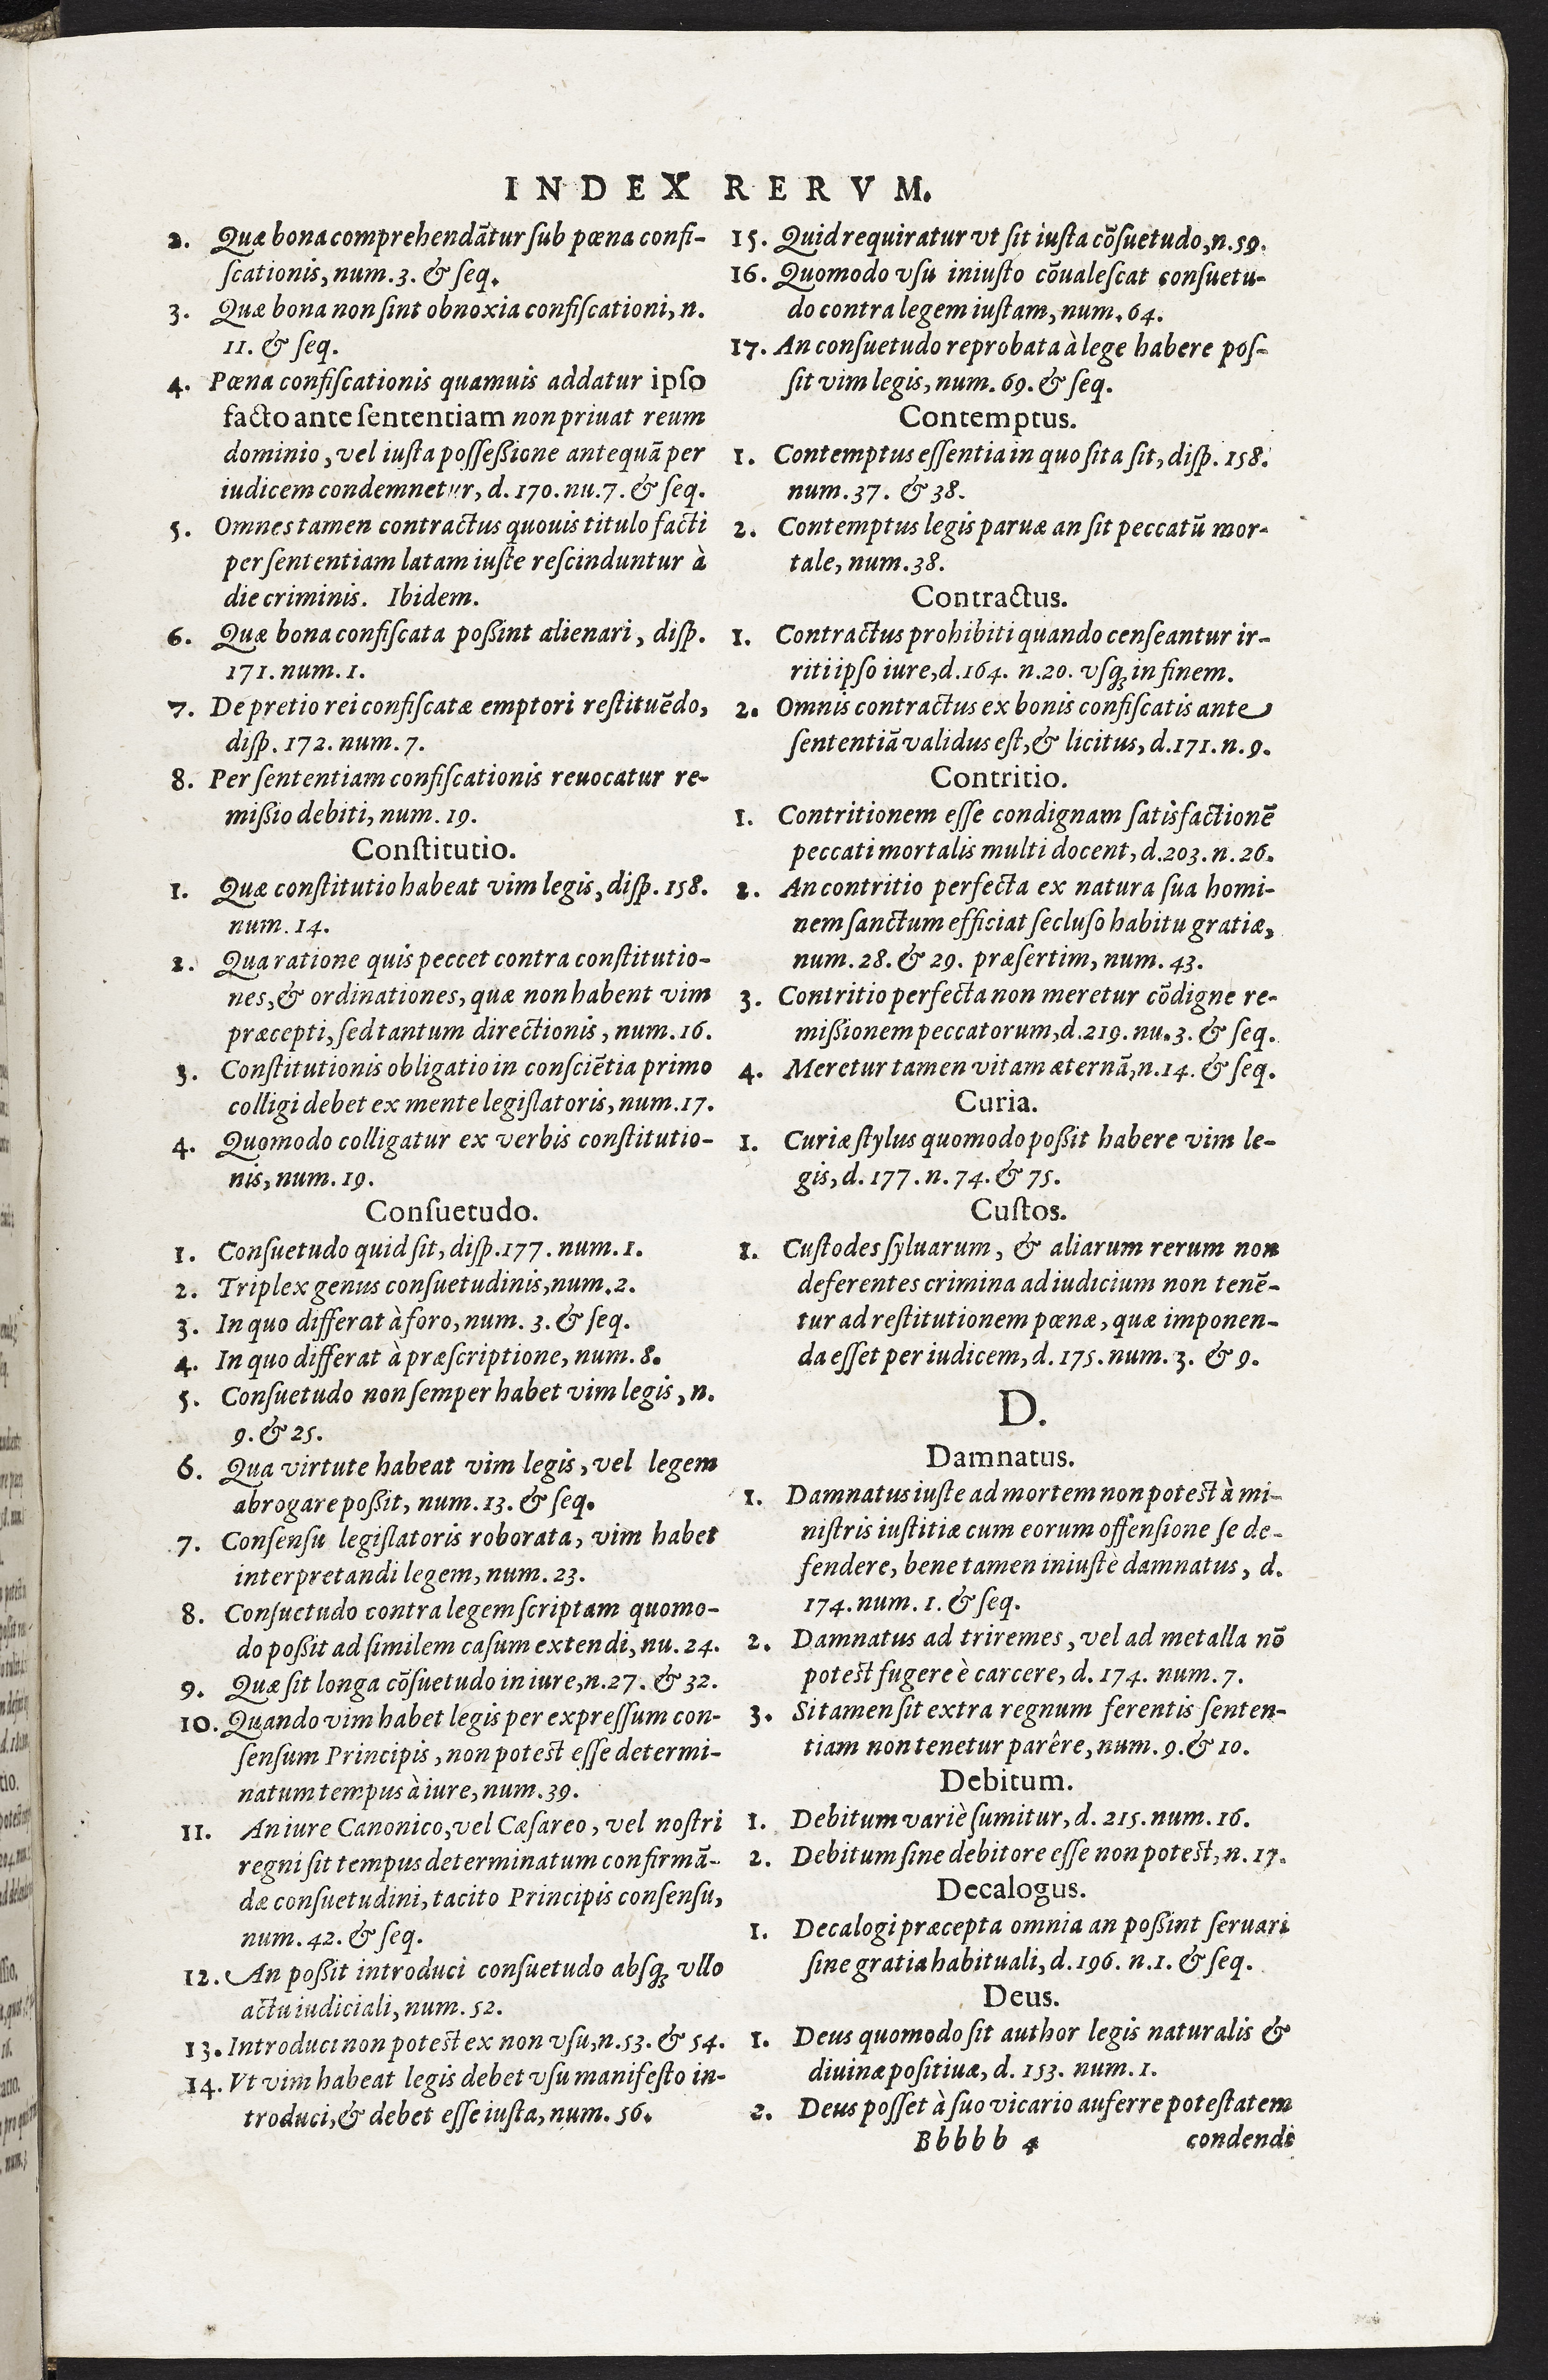 INDEX RERVM.
2. Quæ bona comprehendātur ſub pœna confi-
ſcationis, num. 3. & ſeq.
3. Quæ bona non ſint obnoxia confiſcationi, n.
11. & ſeq.
4. Pœna confiſcationis quamuis addatur ipſo
facto ante ſententiam non priuat reum
dominio, vel iuſta poſſeßione antequā per
iudicem condemnetur, d. 170. nu. 7. & ſeq.
5. Omnes tamen contractus quouis titulo facti
per ſententiam latam iuſte reſcinduntur à
die criminis. Ibidem.
6. Quæ bona confiſcata poßint alienari, diſp.
171. num. 1.
7. De pretio rei confiſcatæ emptori reſtituēdo,
diſp. 172. num. 7.
8. Per ſententiam confiſcationis reuocatur re-
mißio debiti, num. 19.
Conſtitutio.
1. Quæ conſtitutio habeat vim legis, diſp. 158.
num. 14.
2. Qua ratione quis peccet contra conſtitutio-
nes, & ordinationes, quæ non habent vim
præcepti, ſed tantum directionis, num. 16.
3. Conſtitutionis obligatio in conſciētia primo
colligi debet ex mente legiſlatoris, num. 17.
4. Quomodo colligatur ex verbis conſtitutio-
nis, num. 19.
Conſuetudo.
1. Conſuetudo quid ſit, diſp. 177. num. 1.
2. Triplex genus conſuetudinis, num. 2.
3. In quo differat à foro, num. 3. & ſeq.
4. In quo differat à præſcriptione, num. 8.
5. Conſuetudo non ſemper habet vim legis, n.
9. & 25.
6. Qua virtute habeat vim legis, vel legem
abrogare poßit, num. 13. & ſeq.
7. Conſenſu legiſlatoris roborata, vim habet
interpretandi legem, num. 23.
8. Conſuetudo contra legem ſcriptam quomo-
do poßit ad ſimilem caſum extendi, nu. 24.
9. Quæ ſit longa cōſuetudo in iure, n. 27. & 32.
10. Quando vim habet legis per expreſſum con-
ſenſum Principis, non poteſt eſſe determi-
natum tempus à iure, num. 39.
11. An iure Canonico, vel Cæſareo, vel noſtri
regni ſit tempus determinatum confirmā-
dæ conſuetudini, tacito Principis conſenſu,
num. 42. & ſeq.
12. An poßit introduci conſuetudo abſq; vllo
actu iudiciali, num. 52.
13. Introduci non poteſt ex non vſu, n. 53. & 54.
14. Vt vim habeat legis debet vſu manifeſto in-
troduci, & debet eſſe iuſta, num. 56.
15. Quid requiratur vt ſit iuſta cōſuetudo, n. 59.
16. Quomodo vſu iniuſto cōualeſcat conſuetu-
do contra legem iuſtam, num. 64.
17. An conſuetudo reprobata à lege habere poſ-
ſit vim legis, num. 69. & ſeq.
Contemptus.
1. Contemptus eſſentia in quo ſita ſit, diſp. 158.
num. 37. & 38.
2. Contemptus legis paruæ an ſit peccatū mor-
tale, num. 38.
Contractus.
1. Contractus prohibiti quando cenſeantur ir-
riti ipſo iure, d. 164. n. 20. vſq; in finem.
2. Omnis contractus ex bonis confiſcatis ante
ſententiā validus eſt, & licitus, d. 171. n. 9.
Contritio.
1. Contritionem eſſe condignam ſatisfactionē
peccati mortalis multi docent, d. 203. n. 26.
2. An contritio perfecta ex natura ſua homi-
nem ſanctum efficiat ſecluſo habitu gratiæ,
num. 28. & 29. præſertim, num. 43.
3. Contritio perfecta non meretur cōdigne re-
mißionem peccatorum, d. 219. nu. 3. & ſeq.
4. Meretur tamen vitam æternā, n. 14. & ſeq.
Curia.
1. Curiæ ſtylus quomodo poßit habere vim le-
gis, d. 177. n. 74. & 75.
Cuſtos.
1. Cuſtodes ſyluarum, & aliarum rerum non
deferentes crimina ad iudicium non tenē-
tur ad reſtitutionem pœnæ, quæ imponen-
da eſſet per iudicem, d. 175. num. 3. & 9.
D.
Damnatus.
1. Damnatus iuſte ad mortem non poteſt à mi-
niſtris iuſtitiæ cum eorum offenſione ſe de-
fendere, bene tamen iniuſtè damnatus, d.
174. num. 1. & ſeq.
2. Damnatus ad triremes, vel ad metalla nō
poteſt fugere è carcere, d. 174. num. 7.
3. Si tamen ſit extra regnum ferentis ſenten-
tiam non tenetur parêre, num. 9. & 10.
Debitum.
1. Debitum variè ſumitur, d. 215. num. 16.
2. Debitum ſine debitore eſſe non poteſt, n. 17.
Decalogus.
1. Decalogi præcepta omnia an poßint ſeruari
ſine gratia habituali, d. 196. n. 1. & ſeq.
Deus.
1. Deus quomodo ſit author legis naturalis &
diuinæ poſitiuæ, d. 153. num. 1.
2. Deus poſſet à ſuo vicario auferre poteſtatem
Bbbbb 4 condendi